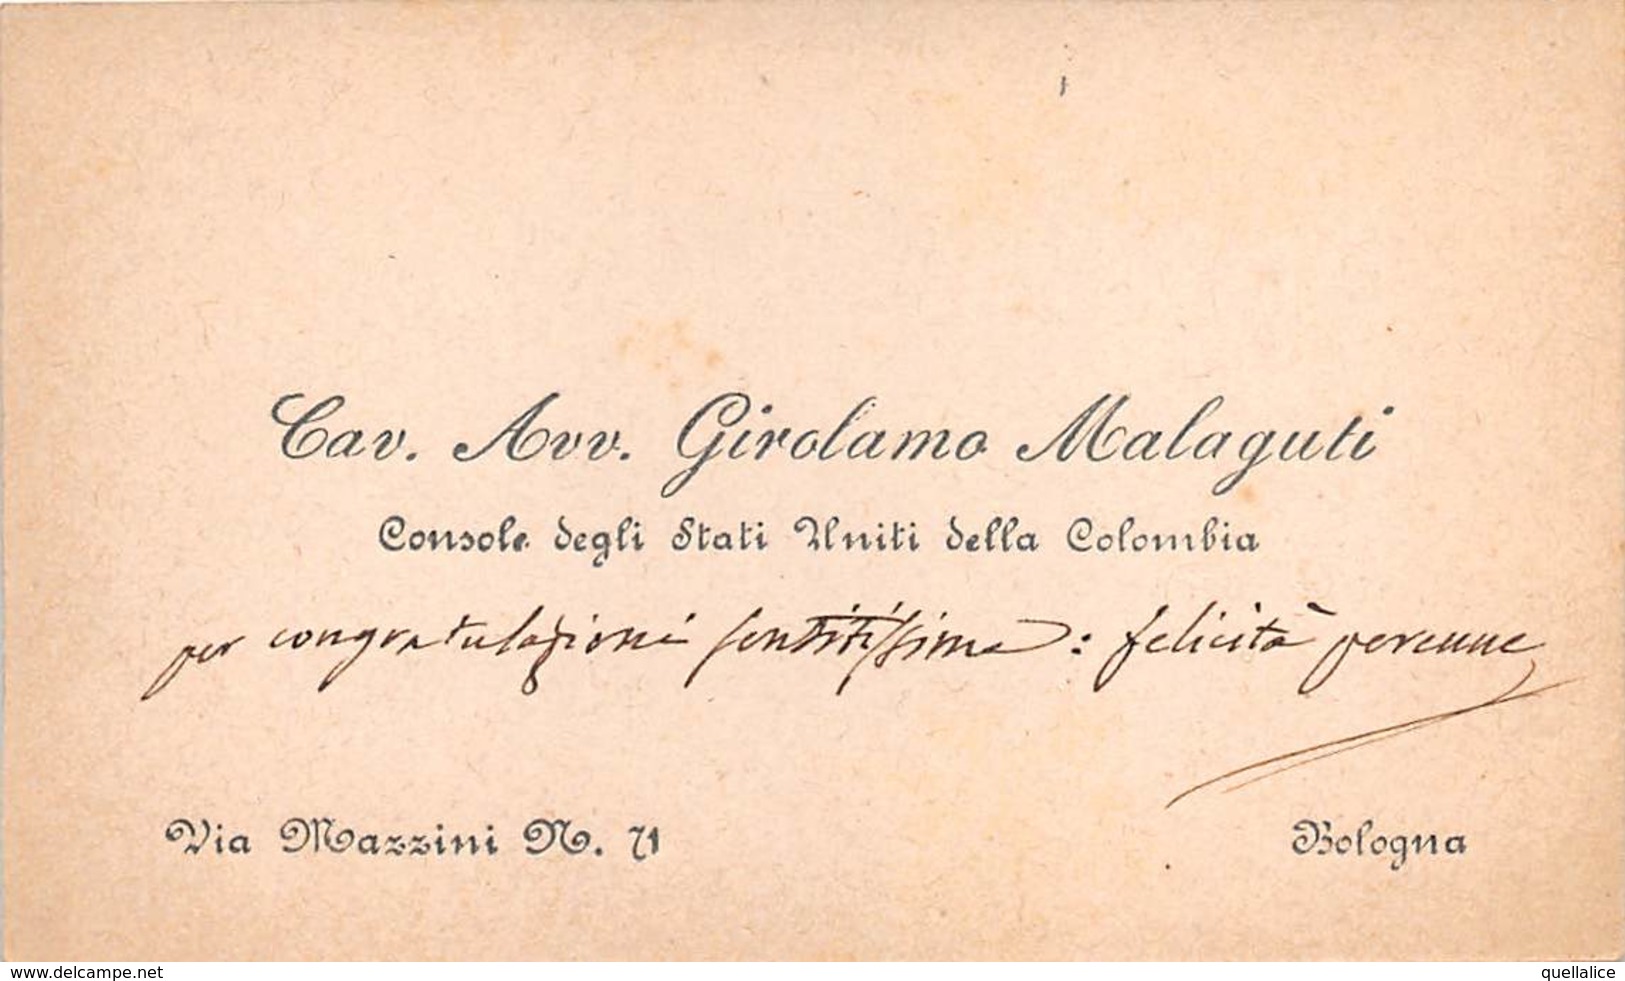 Cav. Avv. Girolamo Malaguti
Console degli Stati Uniti della Colombia
per congratulazioni sentitissime: felicità perenne
Via Mazzini N. 71 Bologna
www.delcampe.net quellalice